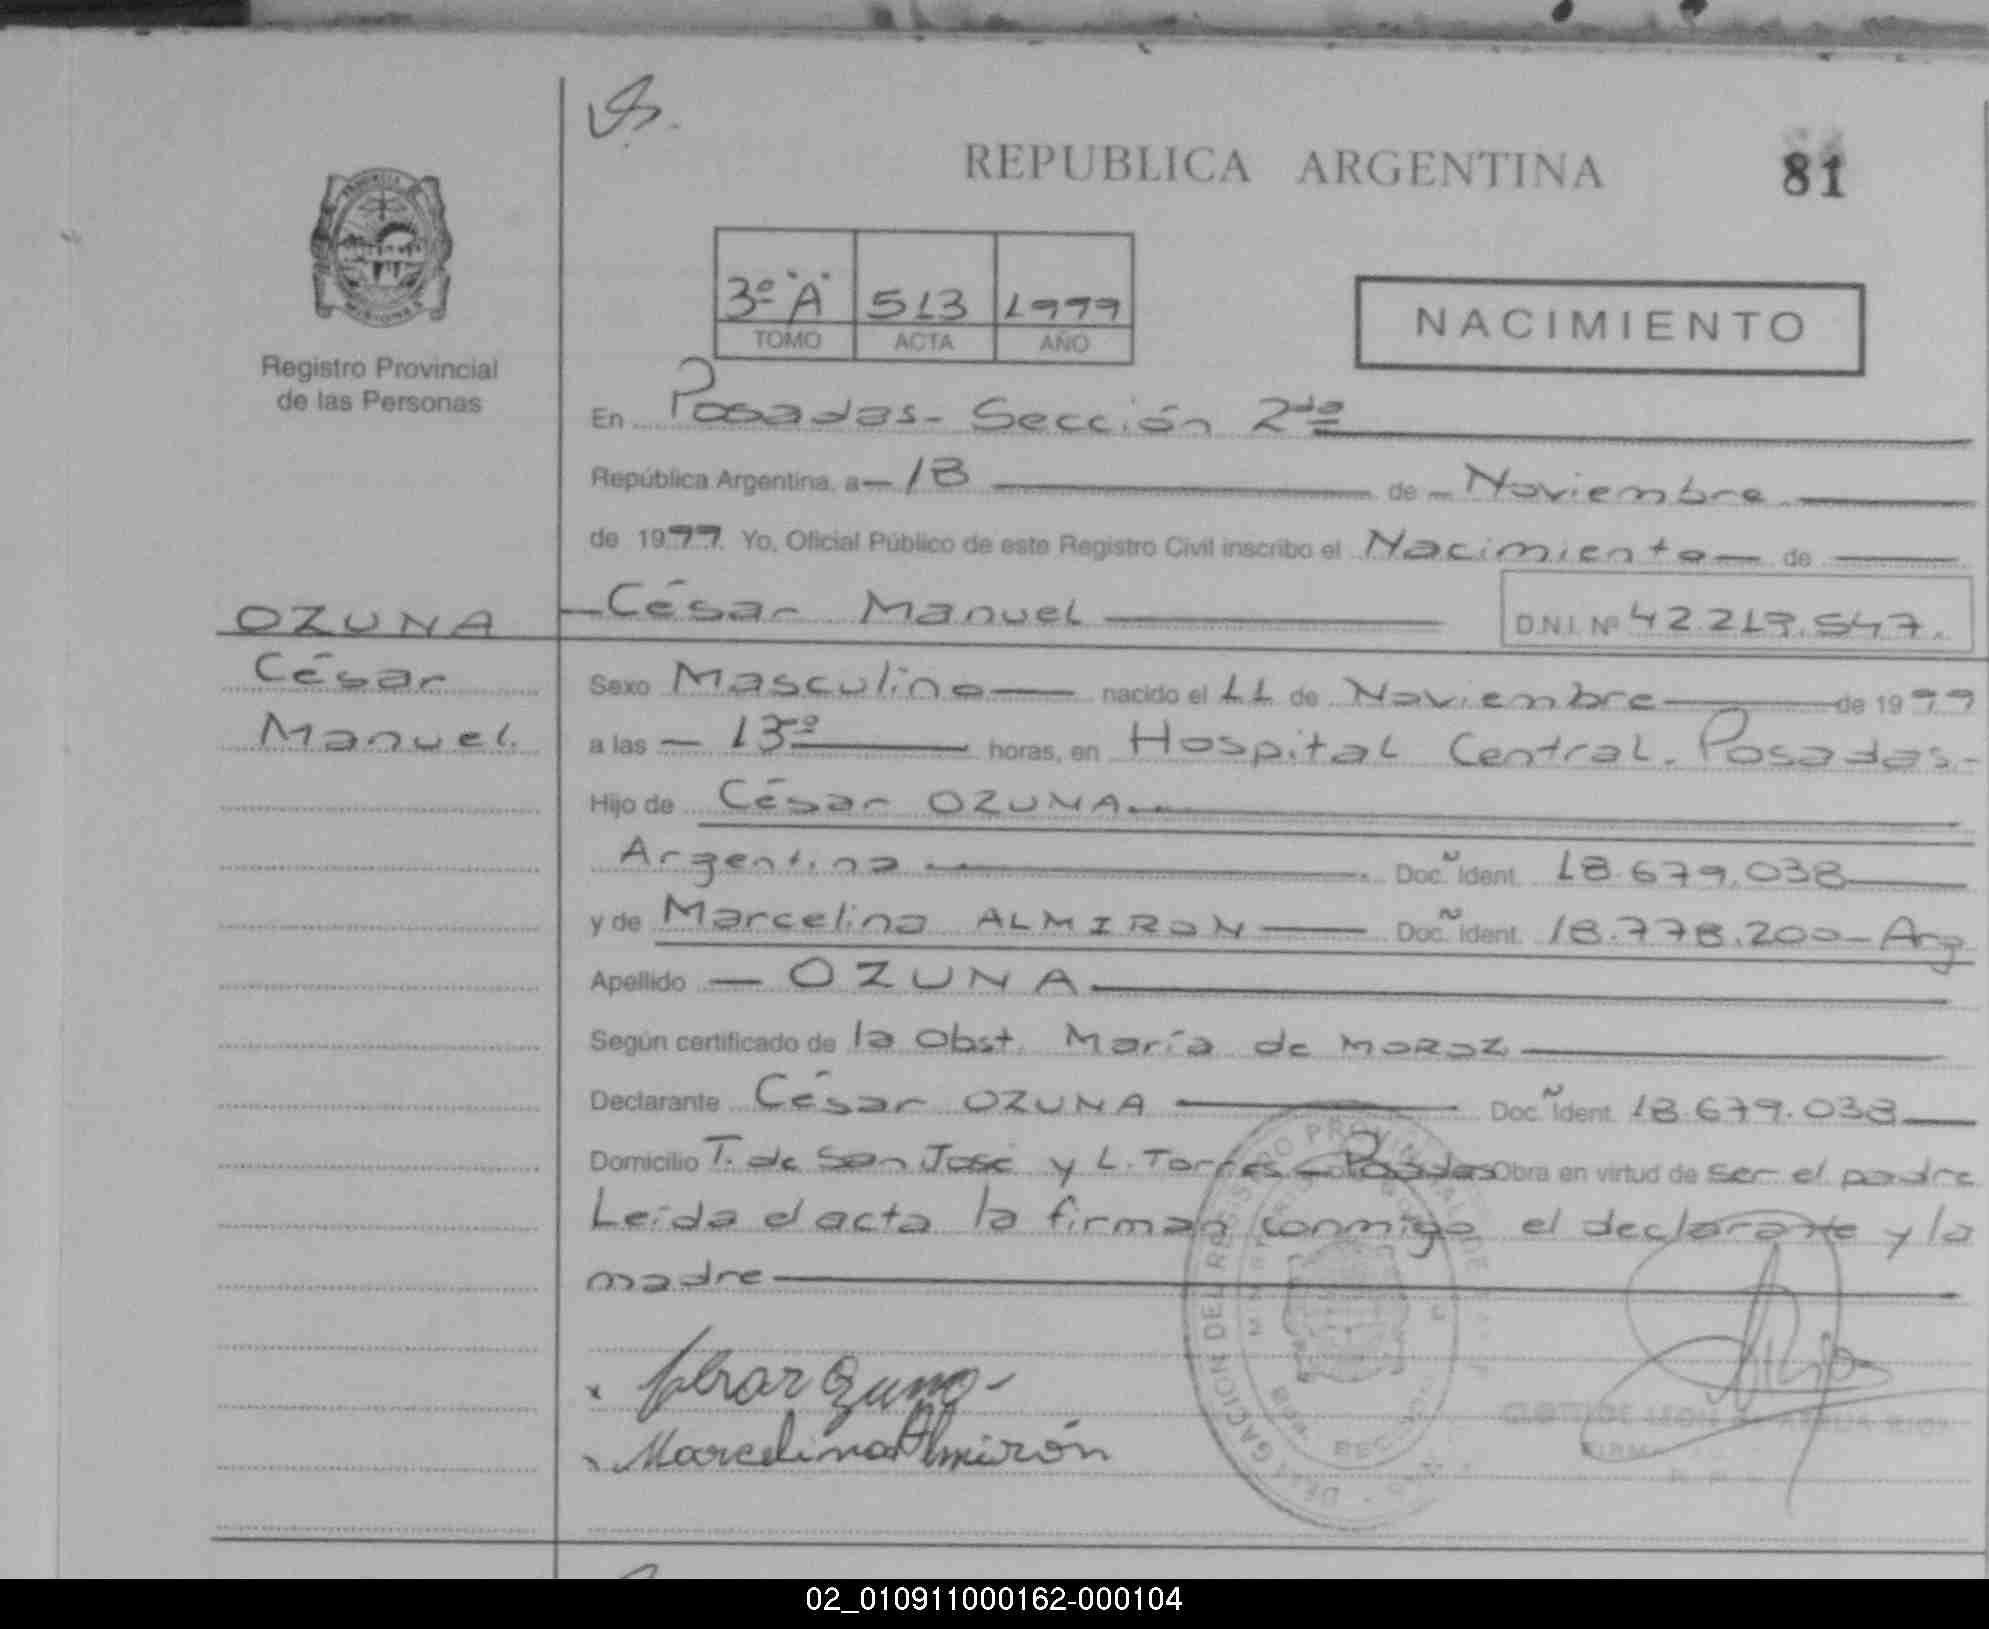 REPUBLICA ARGENTINA
81
3º "A" 513 1999
TOMO ACTA AÑO
NACIMIENTO
Registro Provincial
de las Personas
En Posadas - Sección 2da
República Argentina, a 18 de Noviembre
de 1999. Yo, Oficial Público de este Registro Civil inscribo el Nacimiento de
OZUNA
César
Manuel
César Manuel D.N.I. Nº 42.219.547.
Sexo Masculino nacido el 11 de Noviembre de 1999
a las 13º horas, en Hospital Central. Posadas.-
Hijo de César OZUNA
Argentina Doc. Ñ Ident. 18.679.038
y de Marcelina ALMIRON Doc. Ñ Ident. 18.778.200 - Arg
Apellido OZUNA
Según certificado de la Obst. María de MOROZ
Declarante César OZUNA Doc. Ñ Ident. 18.679.038
Domicilio T. de San José y L. Torres - Posadas Obra en virtud de ser el padre
Leída el acta la firman conmigo el declarante y la
madre
Marcelina Almirón
02_010911000162-000104